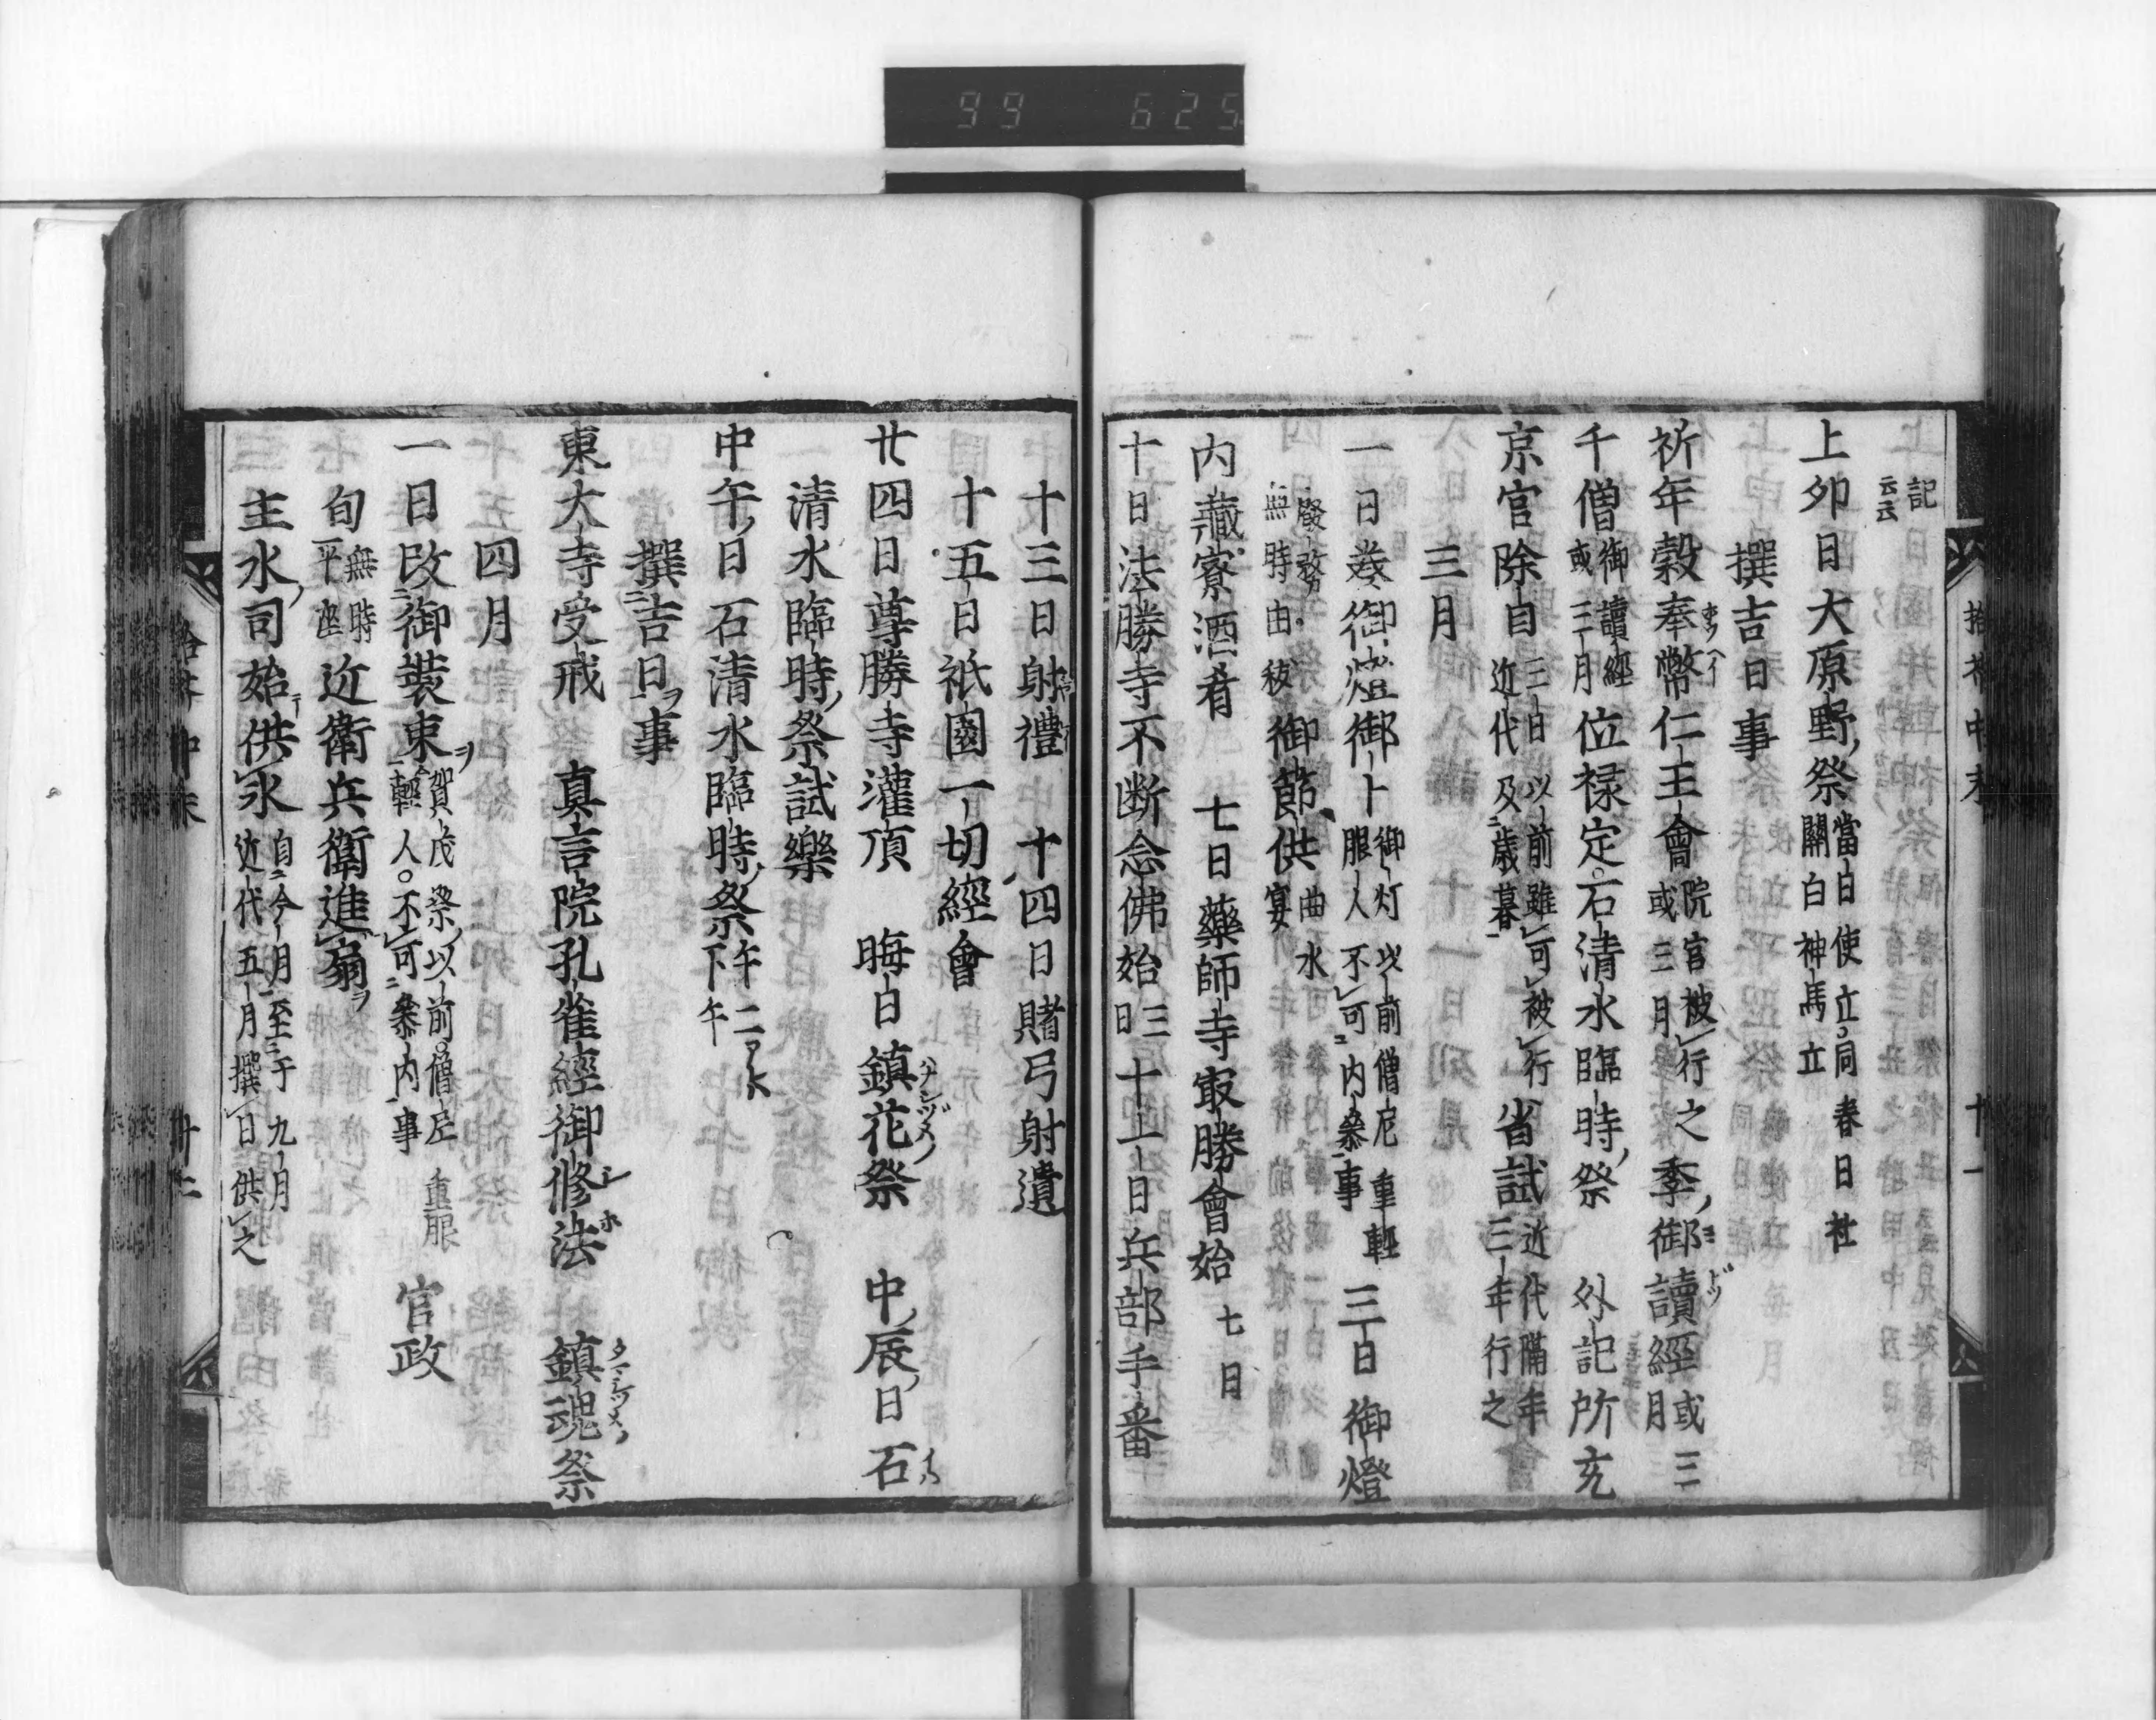 記
云云
上卯日大原野祭 當日使立同春日社
關白神馬立
撰吉日事
祈年穀奉幣 仁王會 院官被行之 或三月 季御讀經 或三月
千僧御讀經 或三月 位禄定 石清水臨時祭 外記所充
京官除目 三日以前雖可被行 近代及歳暮 省試 近代隔年 三年行之
三月
一日 御燈御卜 御灯以前僧尼重輕服人不可内參事 三日 御燈
廢務 無時由祓 御節供 曲水宴
内藏寮酒肴 七日藥師寺最勝會始 七日
十日法勝寺不断念佛始 三日 十一日兵部手番
十三日射禮 十四日賭弓射遺
十五日祇園一切經會
廿四日尊勝寺灌頂 晦日鎮花祭 中辰日石
清水臨時祭試樂
中午日石清水臨時祭 午二下午
撰吉日事
東大寺受戒 真言院孔雀經御修法 鎮魂祭
四月
一日改御裝束 賀茂祭以前僧尼重服輕人不可參内事 官政
旬 無時平座 近衛兵衛進扇
主水司始供氷 自今月至于九月 近代五月撰日供之
拾芥中末 十一
拾芥中末 廿二
99 625